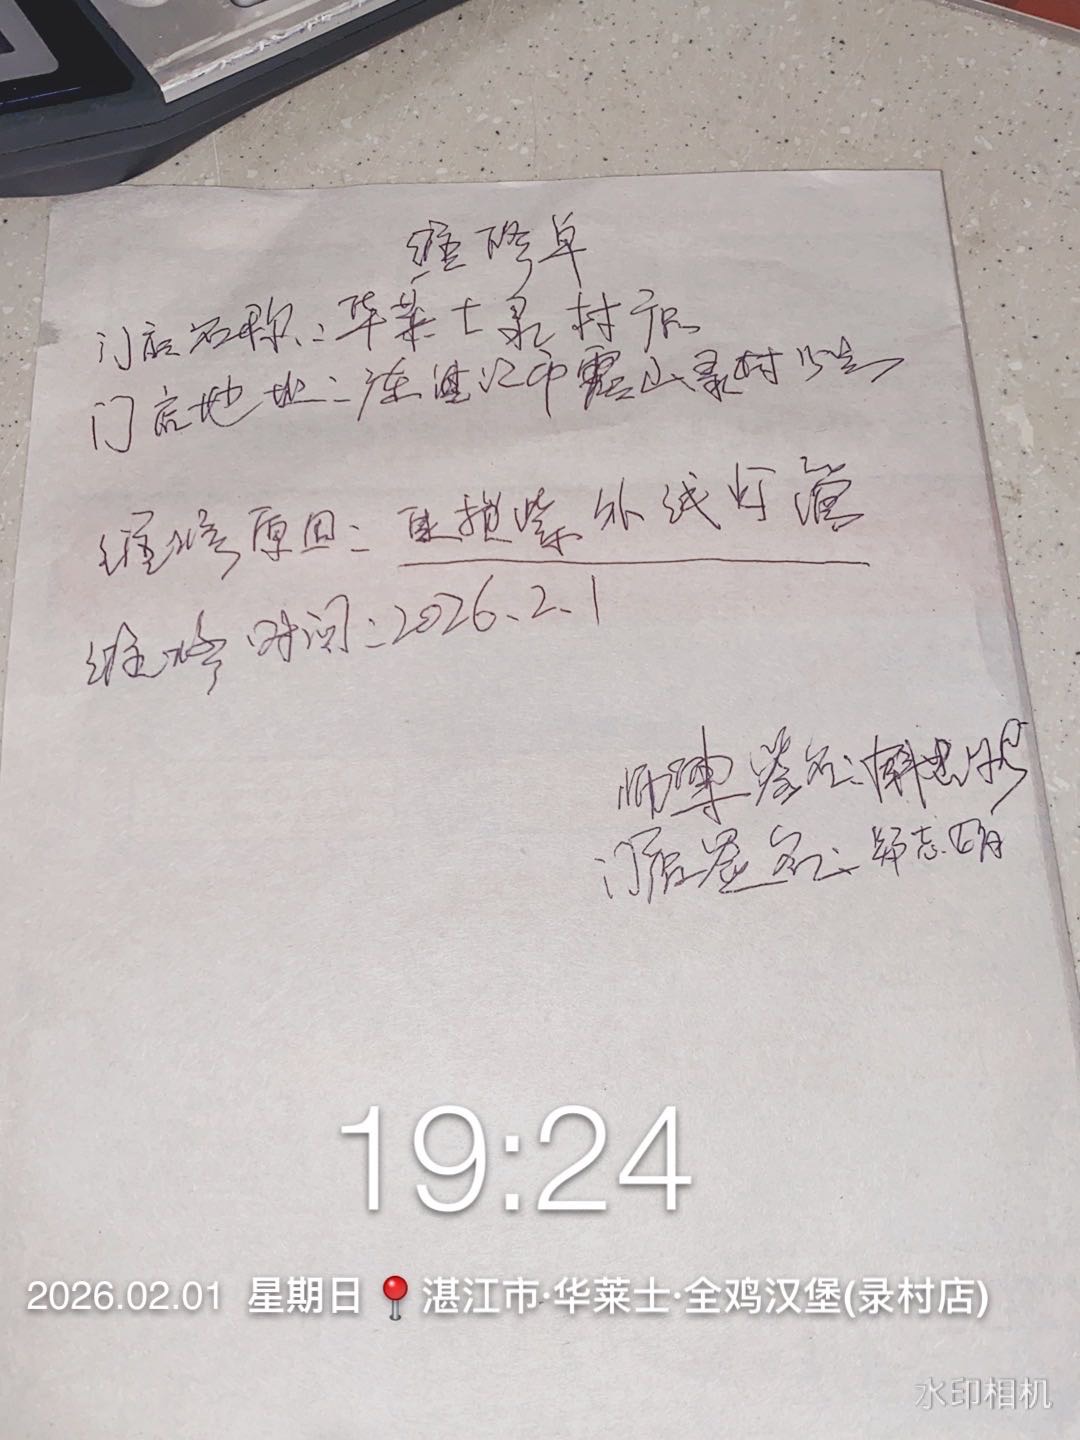 维修单
门店名称：华莱士录村店
门店地址：湛江市霞山录村
维修原因：更换紫外线灯管
维修时间：2026.2.1
师傅签名：韩忠
门店签名：郑志明
19:24
2026.02.01 星期日 湛江市·华莱士·全鸡汉堡(录村店)
水印相机